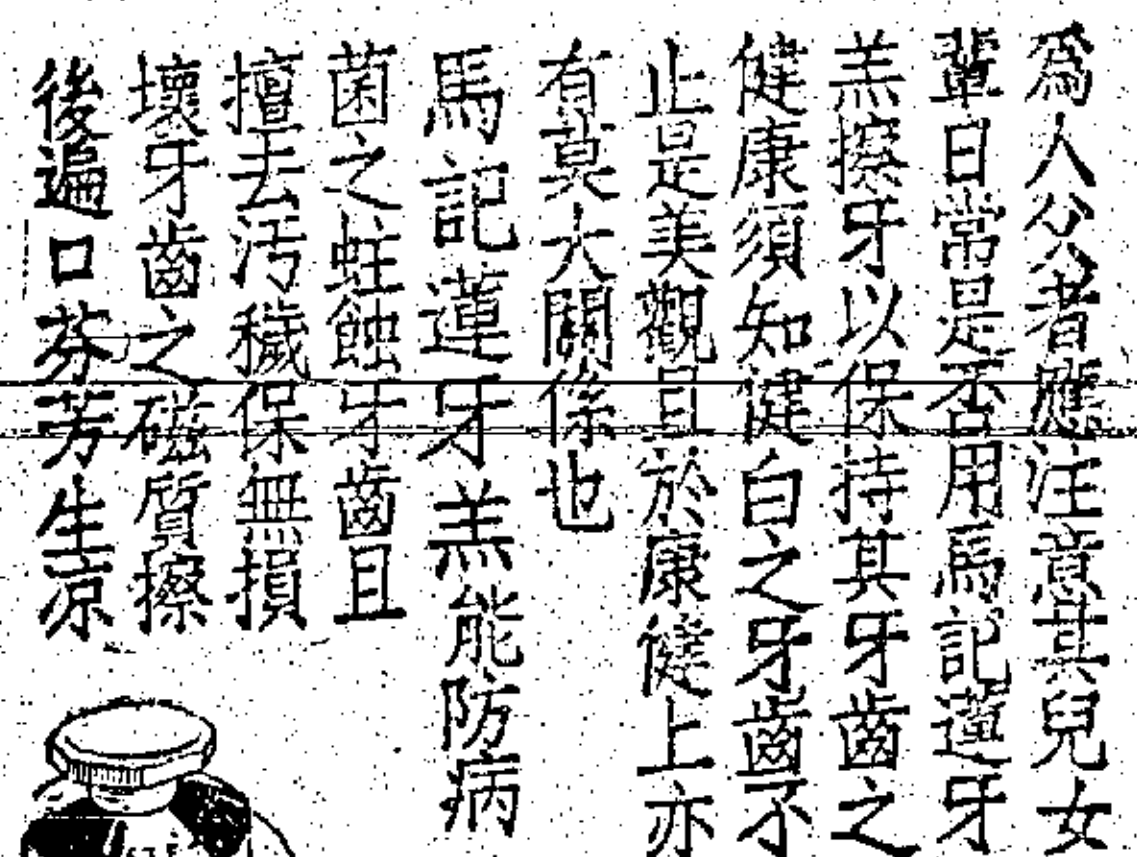 為人父者應注意其兒女
輩日常是否用馬記蓮牙
羔擦牙以保持其牙齒之
健康須知健白之牙齒不
止是美觀且於康健上亦
有莫大關係也
馬記蓮牙羔能防病
菌之蛀蝕牙齒且
擅去汚穢保無損
壞牙齒之磁質擦
後遍口芬芳生凉